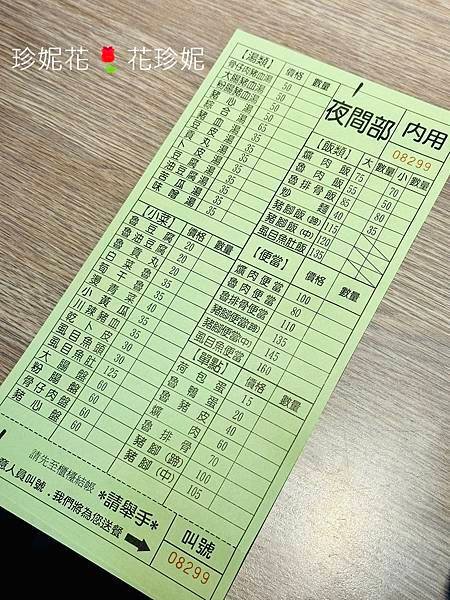 珍妮花🌹花珍妮
【湯類】 價格 數量
骨仔肉豬血湯 50
大腸豬血湯 50
粉腸豬血湯 50
豬心湯 65
綜合湯 65
豆腐湯 35
貢丸湯 35
卜皮湯 35
豆腐湯 35
油豆腐湯 35
苦瓜湯 35
味噌湯 35
夜間部 內用
08299
【飯類】 大 數量 小 數量
爌肉飯 75 70
魯肉飯 55 50
魯排骨飯 85 80
炒麵 40 35
豬腳飯(蹄) 115
豬腳飯(中) 120
虱目魚肚飯 135
【小菜】 價格 數量
魯豆腐 20
魯油豆腐 20
魯貢丸 20
白菜魯 35
筍干 35
燙青菜 40
小黃瓜 35
川辣豬血 35
乾卜皮 35
虱目魚頭 30
虱目魚肚 125
大腸盤 60
粉腸盤 60
骨仔肉盤 60
豬心盤 60
【便當】 價格 數量
爌肉便當 100
魯肉便當 80
魯排骨便當 110
豬腳便當(蹄) 135
豬腳便當(中) 145
虱目魚便當 160
【單點】 價格 數量
荷包蛋 15
魯鴨蛋 20
魯豬皮 40
爌肉 60
魯排骨 70
豬腳(蹄) 100
豬腳(中) 105
請先至櫃檯結帳
人員叫號，我們將為您送餐
*請舉手*
叫號
08299